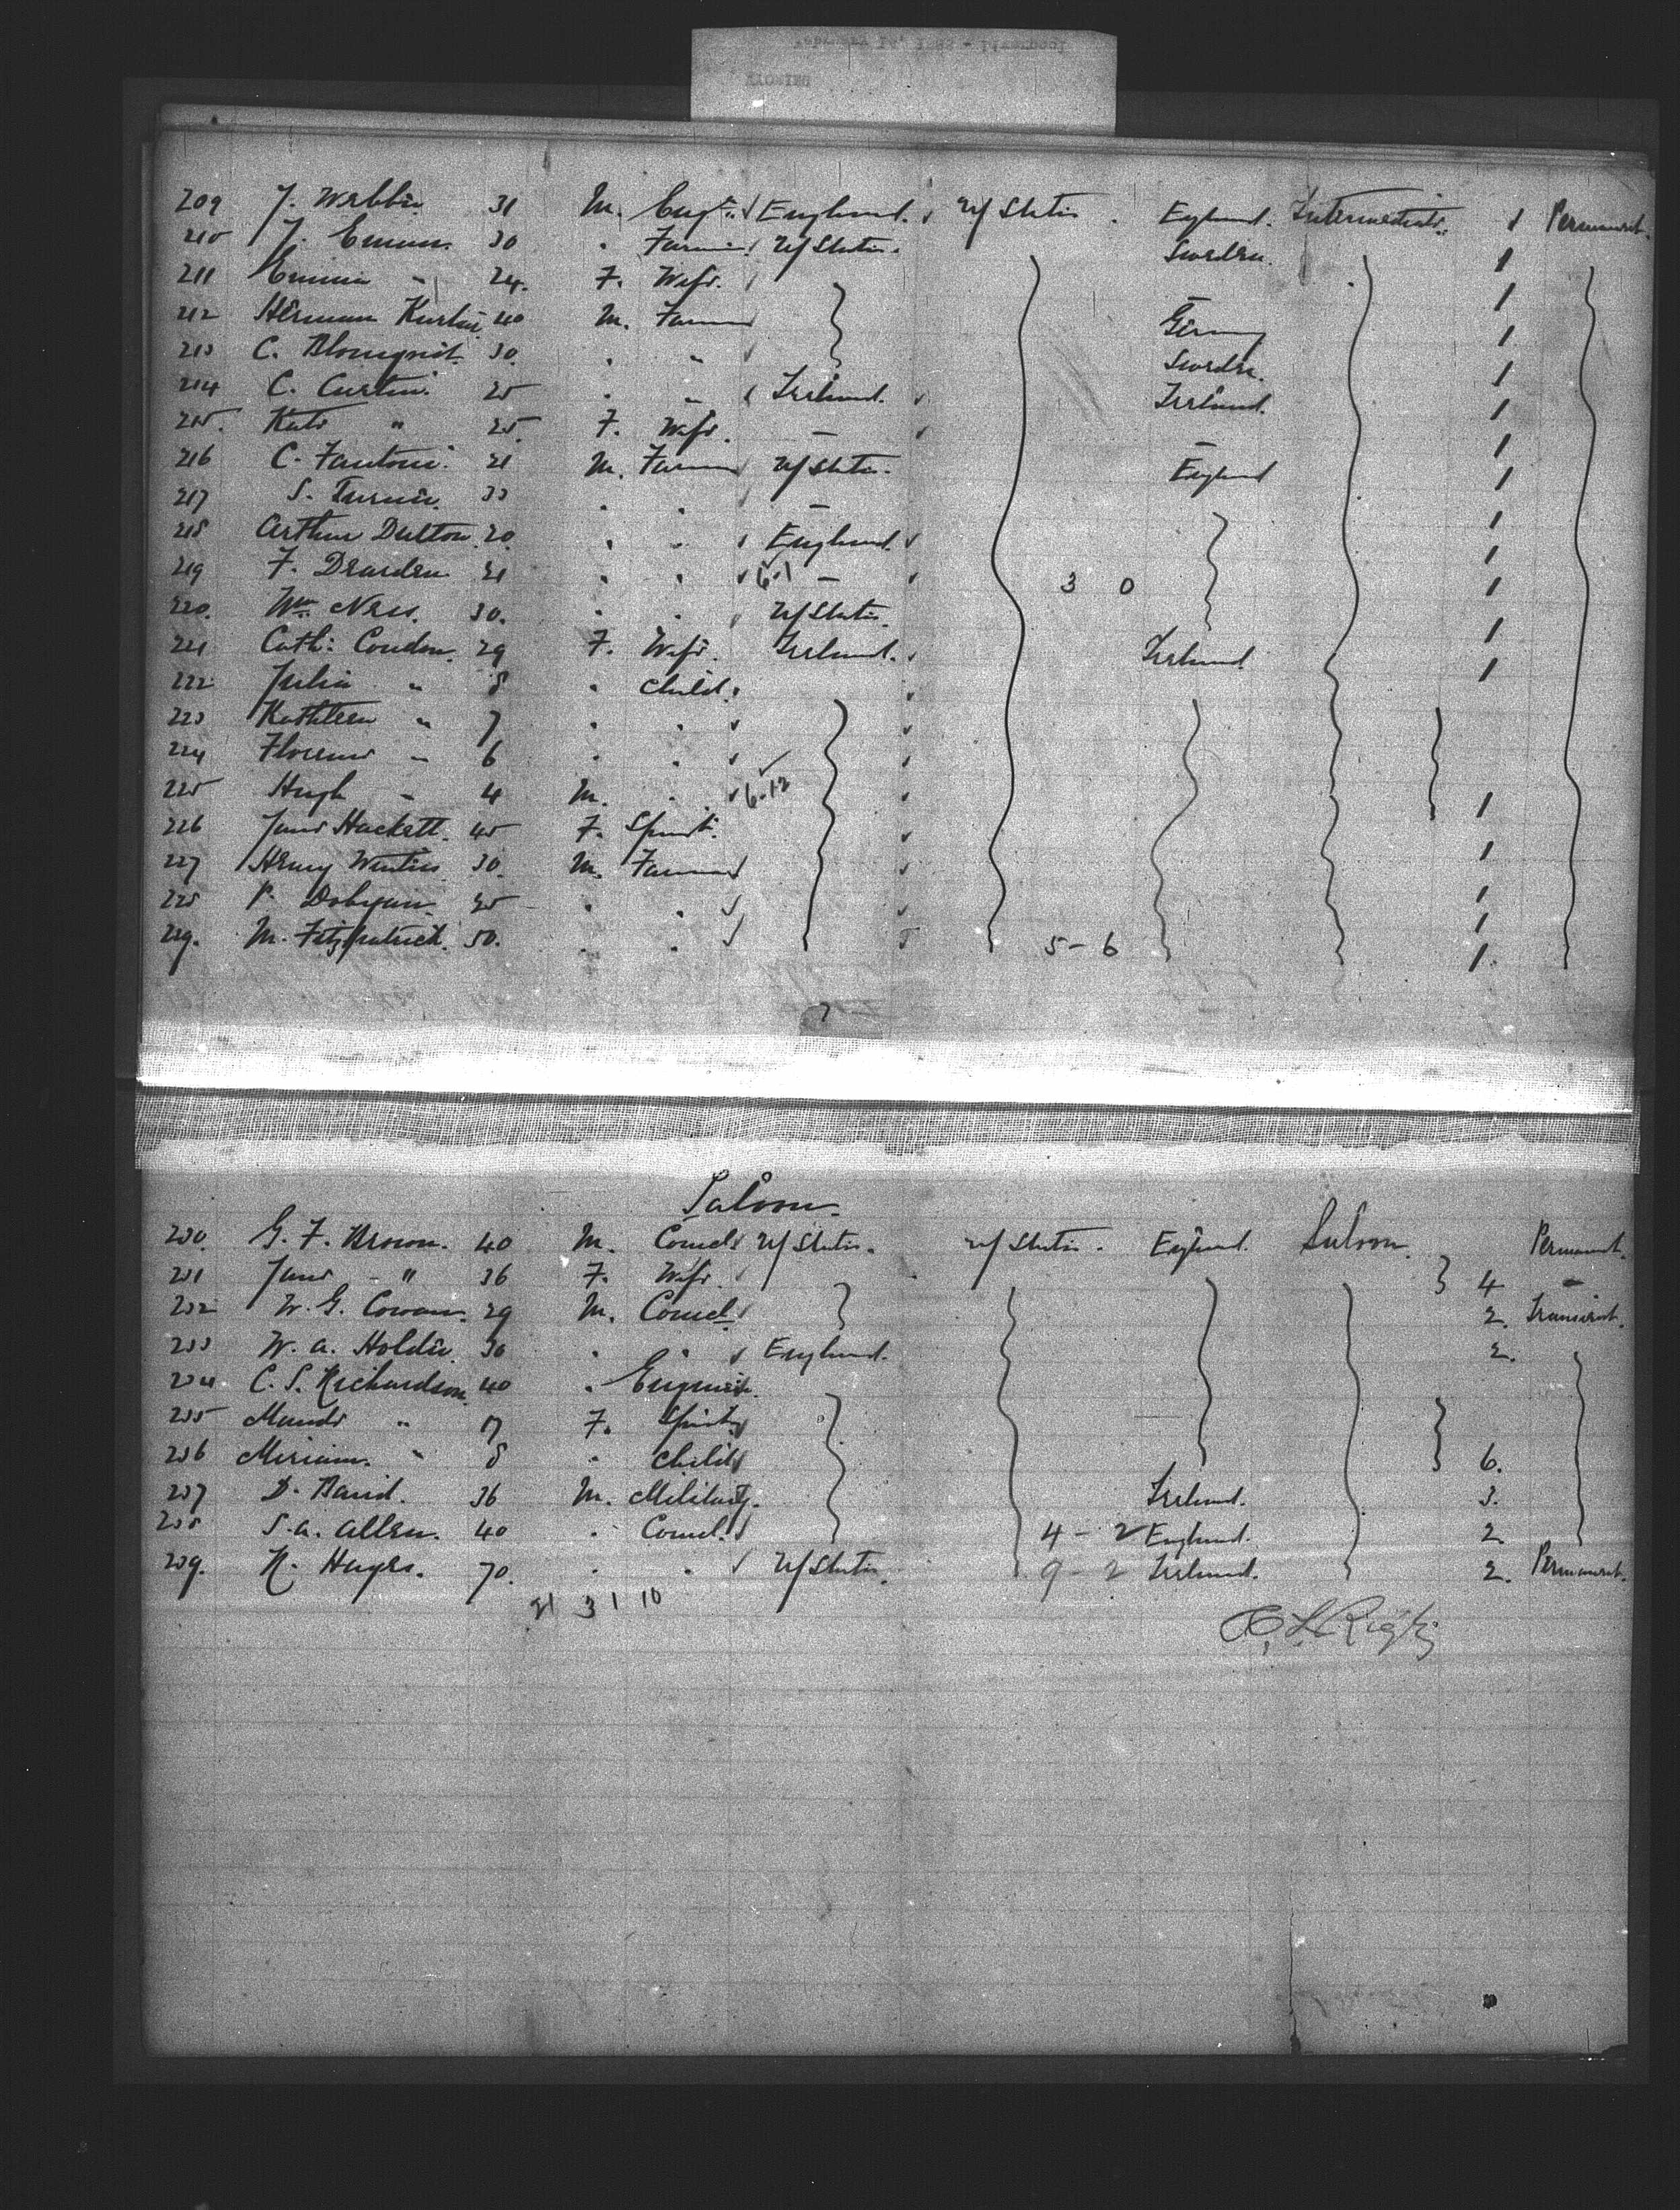 209 J. Webber 31 M. England. U/States. England. Intermediate. 1 Permanent.
210 J. Eman. 30 " Farmer U/States. Sweden. 1
211 Emma " 24. F. Wife. — 1
212 Herman 40 M. Farmer Germany 1
213 C. Blomqvist. 30. " " Sweden. 1
214 C. Curtin. 25 " " Ireland. Ireland. 1
215. Kate " 25. F. Wife. — — 1
216 C. Fantom. 21 M. Farmer U/States. England 1
217 S. Turner. 33 " " — 1
218 Arthur Dutton. 20. " " England. 1
219 F. Dearden. 21 " " 6-1 — 3 0 1
220. Wm Ness. 30. " " U/States. 1
221 Cath: Condon. 29 F. Wife. Ireland. Ireland. 1
222 Julia " 8 " Child.
223 Kathleen " 7 " "
224 Florence " 6 " "
225 Hugh " 4 M. " 6-12 1
226 Jane Hackett. 45 F. Spinst.
227 Henry Winters 30. M. Farmer 1
228 P. 25 " " 1
229. M. Fitzpatrick. 50. " " 5-6 1.
7
Saloon.
230. G. F. Brown. 40 M. Comcl. U/States. U/States. England. Saloon. Permanent.
231 Jane " 36 F. Wife. 4 "
232 W. G. Cowan. 29 M. Comcl. 2. Transient.
233 W. A. Holder. 30 " " England. 2.
234 C. S. Richardson. 40 "
235 Maude " 17 F. Spinst.
236 Miriam. " 8 " Child 6.
237 D. Baird. 36 M. Military. Ireland. 3.
238 S. A. Allen. 40 " Comcl. 4-2 England. 2
239. R. Hayes. 70. " " U/States. 9-2 Ireland. 2. Permanent.
21 3 1 10